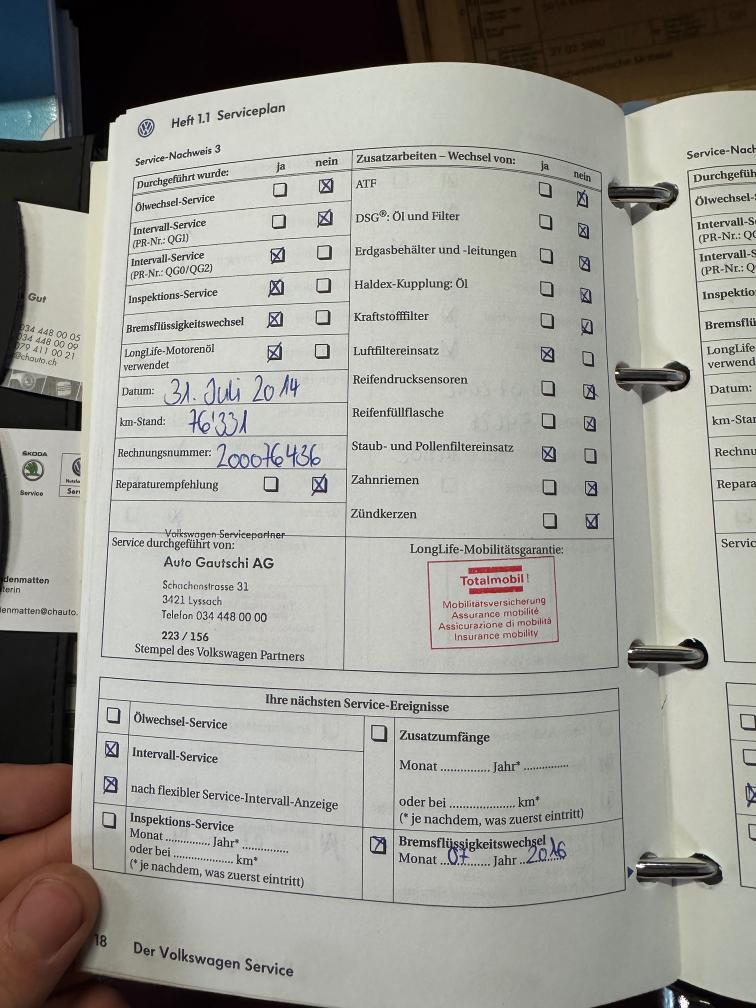 Heft 1.1 Serviceplan
Service-Nachweis 3
Durchgeführt wurde: ja nein
Ölwechsel-Service
Intervall-Service
(PR-Nr.: QG1)
Intervall-Service
(PR-Nr.: QG0/QG2)
Inspektions-Service
Bremsflüssigkeitswechsel
LongLife-Motorenöl
verwendet
Datum: 31. Juli 2014
km-Stand: 76'331
Rechnungsnummer: 200076436
Reparaturempfehlung
Zusatzarbeiten – Wechsel von: ja nein
ATF
DSG®: Öl und Filter
Erdgasbehälter und -leitungen
Haldex-Kupplung: Öl
Kraftstofffilter
Luftfiltereinsatz
Reifendrucksensoren
Reifenfüllflasche
Staub- und Pollenfiltereinsatz
Zahnriemen
Zündkerzen
Volkswagen Servicepartner
Service durchgeführt von:
Auto Gautschi AG
Schachenstrasse 31
3421 Lyssach
Telefon 034 448 00 00
223 / 156
Stempel des Volkswagen Partners
LongLife-Mobilitätsgarantie:
Totalmobil!
Mobilitätsversicherung
Assurance mobilité
Assicurazione di mobilità
Insurance mobility
Ihre nächsten Service-Ereignisse
Ölwechsel-Service
Intervall-Service
nach flexibler Service-Intervall-Anzeige
Inspektions-Service
Monat .............. Jahr* ..............
oder bei .................... km*
(* je nachdem, was zuerst eintritt)
Zusatzumfänge
Monat .............. Jahr* ..............
oder bei .................... km*
(* je nachdem, was zuerst eintritt)
Bremsflüssigkeitswechsel
Monat 07 Jahr 2016
18 Der Volkswagen Service
Gut
034 448 00 05
034 448 00 09
079 411 00 21
@chauto.ch
ŠKODA
Service
denmatten
terin
denmatten@chauto.
Service-Nach
Durchgefüh
Ölwechsel-
Intervall-S
(PR-Nr.: QG
Intervall-S
(PR-Nr.: Q
Inspektio
Bremsflü
LongLife
verwend
Datum:
km-Star
Rechnu
Repara
Servic